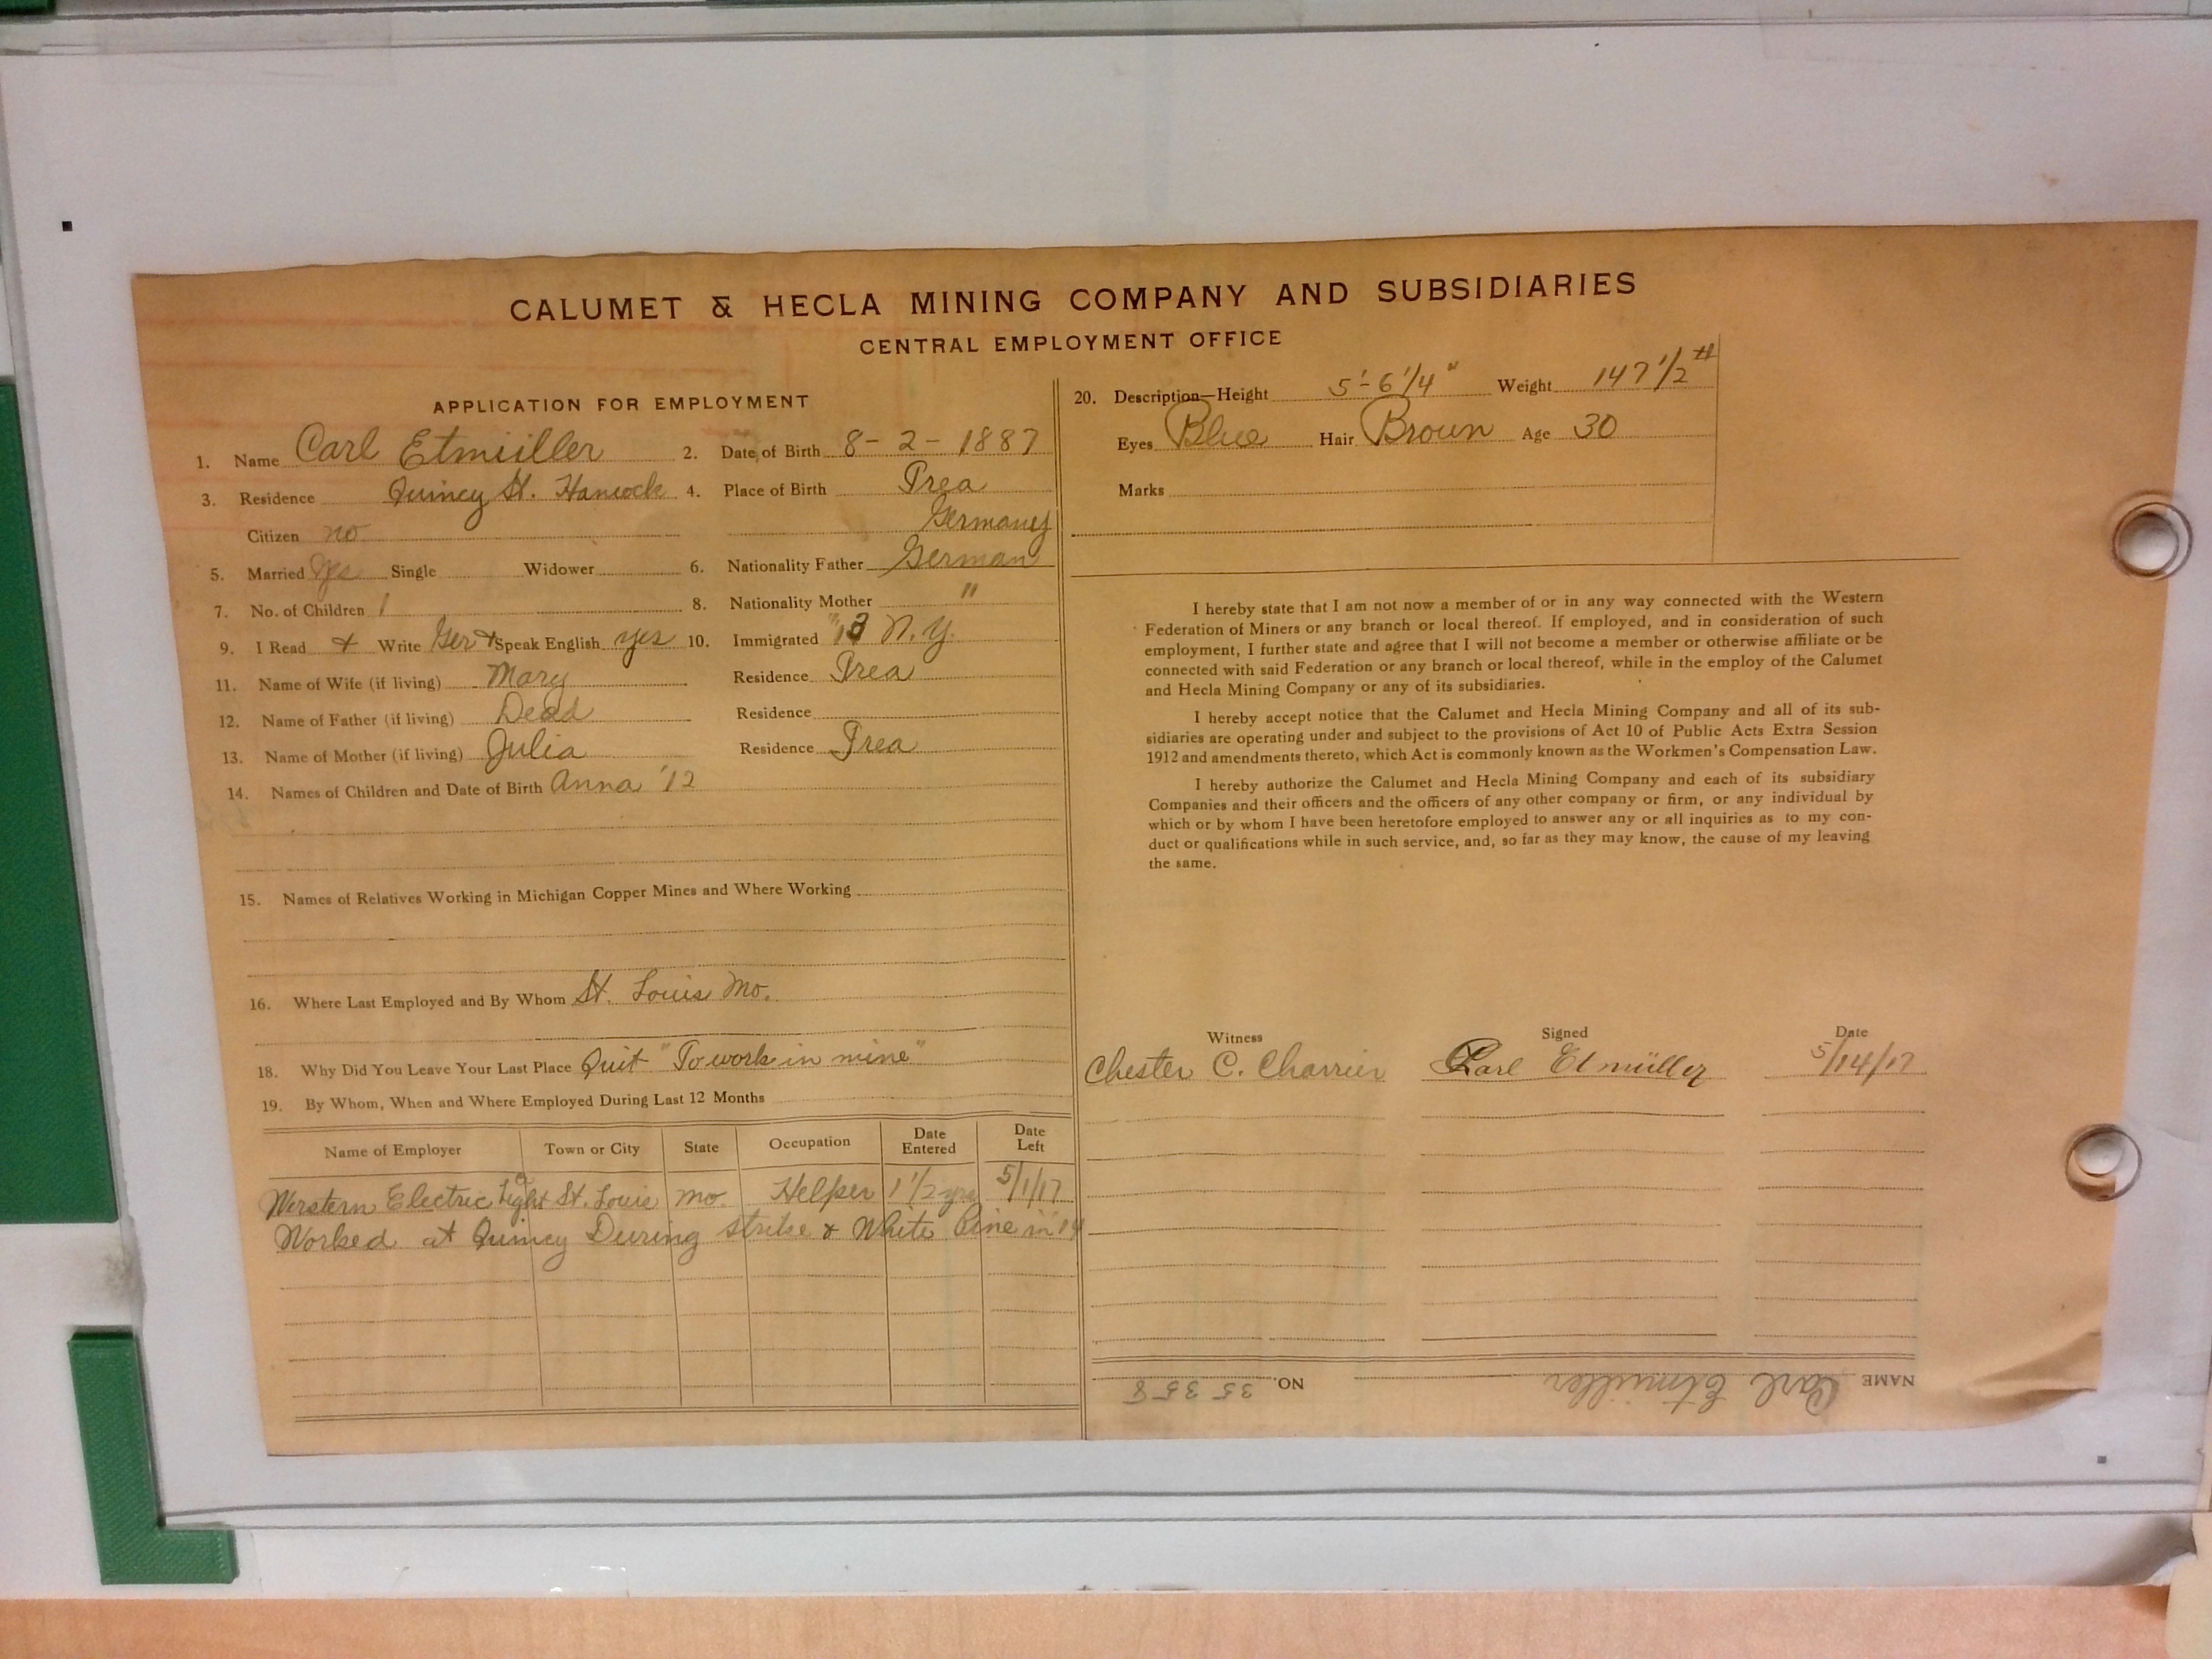 CALUMET & HECLA MINING COMPANY AND SUBSIDIARIES
CENTRAL EMPLOYMENT OFFICE
APPLICATION FOR EMPLOYMENT
1. Name Carl Etmüller 2. Date of Birth 8-2-1887
3. Residence Quincy St. Hancock 4. Place of Birth Prea
Citizen no Germany
5. Married Yes Single Widower 6. Nationality Father German
7. No. of Children 1 8. Nationality Mother "
9. I Read + Write Ger + Speak English yes 10. Immigrated '13 N.Y.
11. Name of Wife (if living) Mary Residence Prea
12. Name of Father (if living) Dead Residence
13. Name of Mother (if living) Julia Residence Prea
14. Names of Children and Date of Birth Anna '12
15. Names of Relatives Working in Michigan Copper Mines and Where Working
16. Where Last Employed and By Whom St. Louis Mo.
18. Why Did You Leave Your Last Place Quit "To work in mine"
19. By Whom, When and Where Employed During Last 12 Months
Name of Employer Town or City State Occupation Date Entered Date Left
Western Electric Light Co St. Louis Mo. Helper 1 1/2 yrs 5/1/17
Worked at Quincy During strike & White Pine in '14
20. Description—Height 5'-6 1/4" Weight 147 1/2 #
Eyes Blue Hair Brown Age 30
Marks
I hereby state that I am not now a member of or in any way connected with the Western
Federation of Miners or any branch or local thereof. If employed, and in consideration of such
employment, I further state and agree that I will not become a member or otherwise affiliate or be
connected with said Federation or any branch or local thereof, while in the employ of the Calumet
and Hecla Mining Company or any of its subsidiaries.
I hereby accept notice that the Calumet and Hecla Mining Company and all of its sub-
sidiaries are operating under and subject to the provisions of Act 10 of Public Acts Extra Session
1912 and amendments thereto, which Act is commonly known as the Workmen's Compensation Law.
I hereby authorize the Calumet and Hecla Mining Company and each of its subsidiary
Companies and their officers and the officers of any other company or firm, or any individual by
which or by whom I have been heretofore employed to answer any or all inquiries as to my con-
duct or qualifications while in such service, and, so far as they may know, the cause of my leaving
the same.
Witness Signed Date
Chester C. Charrier Carl Etmüller 5/14/17
NAME Carl Etmuller NO. 35358